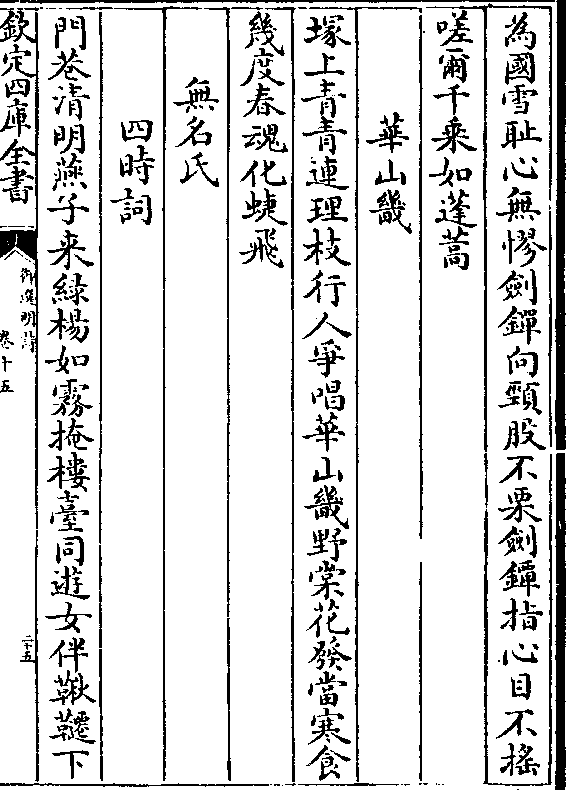 為國雪耻心無憀劍鐔向頸股不栗劍鐔指心目不搖
嗟爾千乘如蓬蒿
華山畿
塚上青青連理枝行人爭唱華山畿野棠花發當寒食
幾度春魂化蜨飛
無名氏
四時詞
門巷清明燕子来綠楊如霧掩樓臺同遊女伴鞦韆下
欽定四庫全書
御選明詩
卷十五
二十五